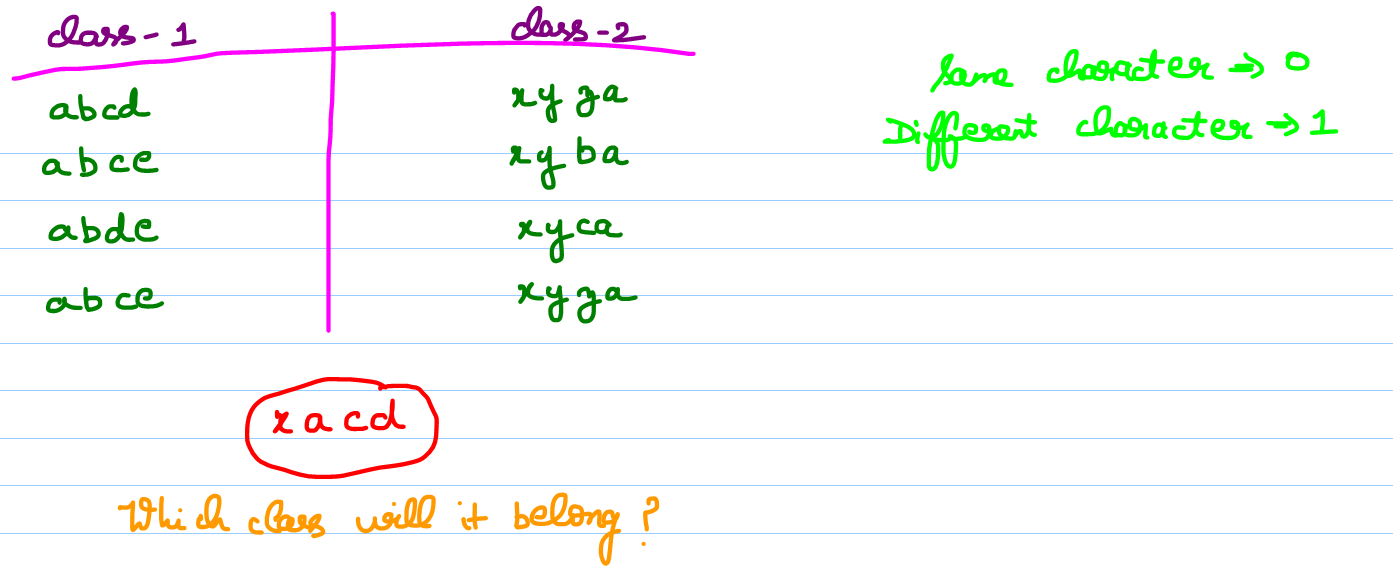 class-1 class-2
abcd xyza
abce xyba
abde xyca
abce xyza
same character → 0
Different character → 1
xacd
Which class will it belong?